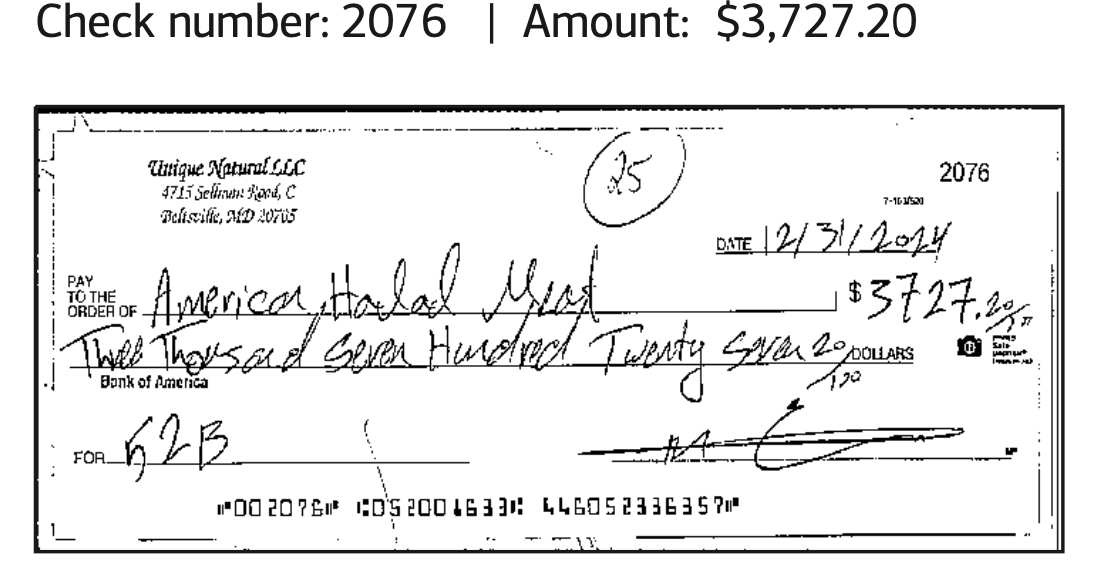 Check number: 2076 | Amount: $3,727.20
Unique Natural LLC
4715 Sellman Road, C
Beltsville, MD 20705
25
2076
7-163/520
DATE 12/31/2024
PAY TO THE ORDER OF American Halal Meat $3727.20/100
Three Thousand Seven Hundred Twenty Seven 20/100 DOLLARS
Bank of America
FOR 52B
MP
⑈002076⑈ ⑆052001633⑆ 446052336357⑈